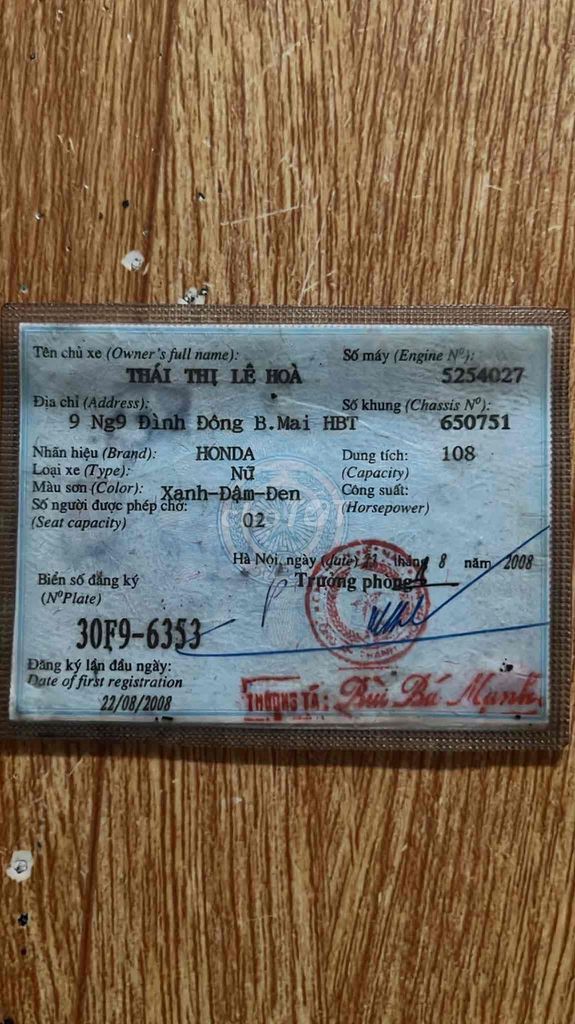 Tên chủ xe (Owner's full name):
THÁI THỊ LÊ HOÀ
Số máy (Engine Nº):
5254027
Địa chỉ (Address):
9 Ng9 Đình Đông B.Mai HBT
Số khung (Chassis Nº):
650751
Nhãn hiệu (Brand): HONDA
Dung tích: 108
(Capacity)
Loại xe (Type): Nữ
Màu sơn (Color): Xanh-Đậm-Đen
Công suất:
(Horsepower)
Số người được phép chở: 02
(Seat capacity)
Hà Nội, ngày (date) 21 tháng 8 năm 2008
Trưởng phòng
Biển số đăng ký
(NºPlate)
30F9-6353
Đăng ký lần đầu ngày:
Date of first registration
22/08/2008
THƯỢNG TÁ: Bùi Bá Mạnh